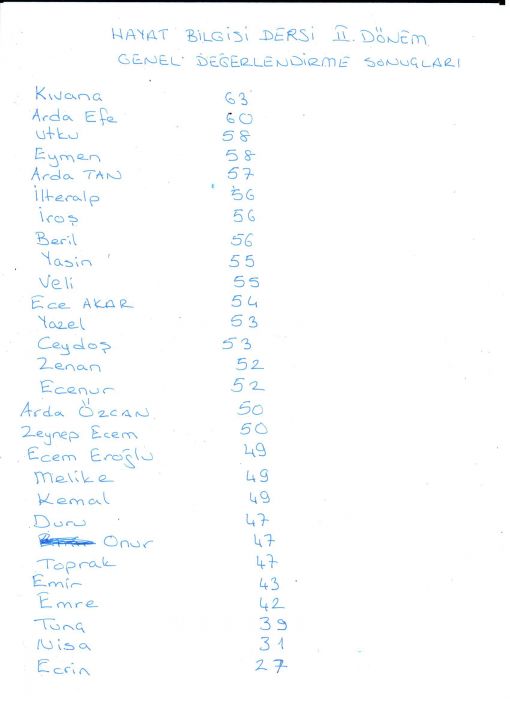 HAYAT BİLGİSİ DERSİ II. DÖNEM
GENEL DEĞERLENDİRME SONUÇLARI
Kıvana 63
Arda Efe 60
Utku 58
Eymen 58
Arda TAN 57
İlteralp 56
İroş 56
Beril 56
Yasin 55
Veli 55
Ece AKAR 54
Yazel 53
Ceydoş 53
Zenan 52
Ecenur 52
Arda ÖZCAN 50
Zeynep Ecem 50
Ecem Eroğlu 49
Melike 49
Kemal 49
Duru 47
Onur 47
Toprak 47
Emir 43
Emre 42
Tuna 39
Nisa 31
Ecrin 27